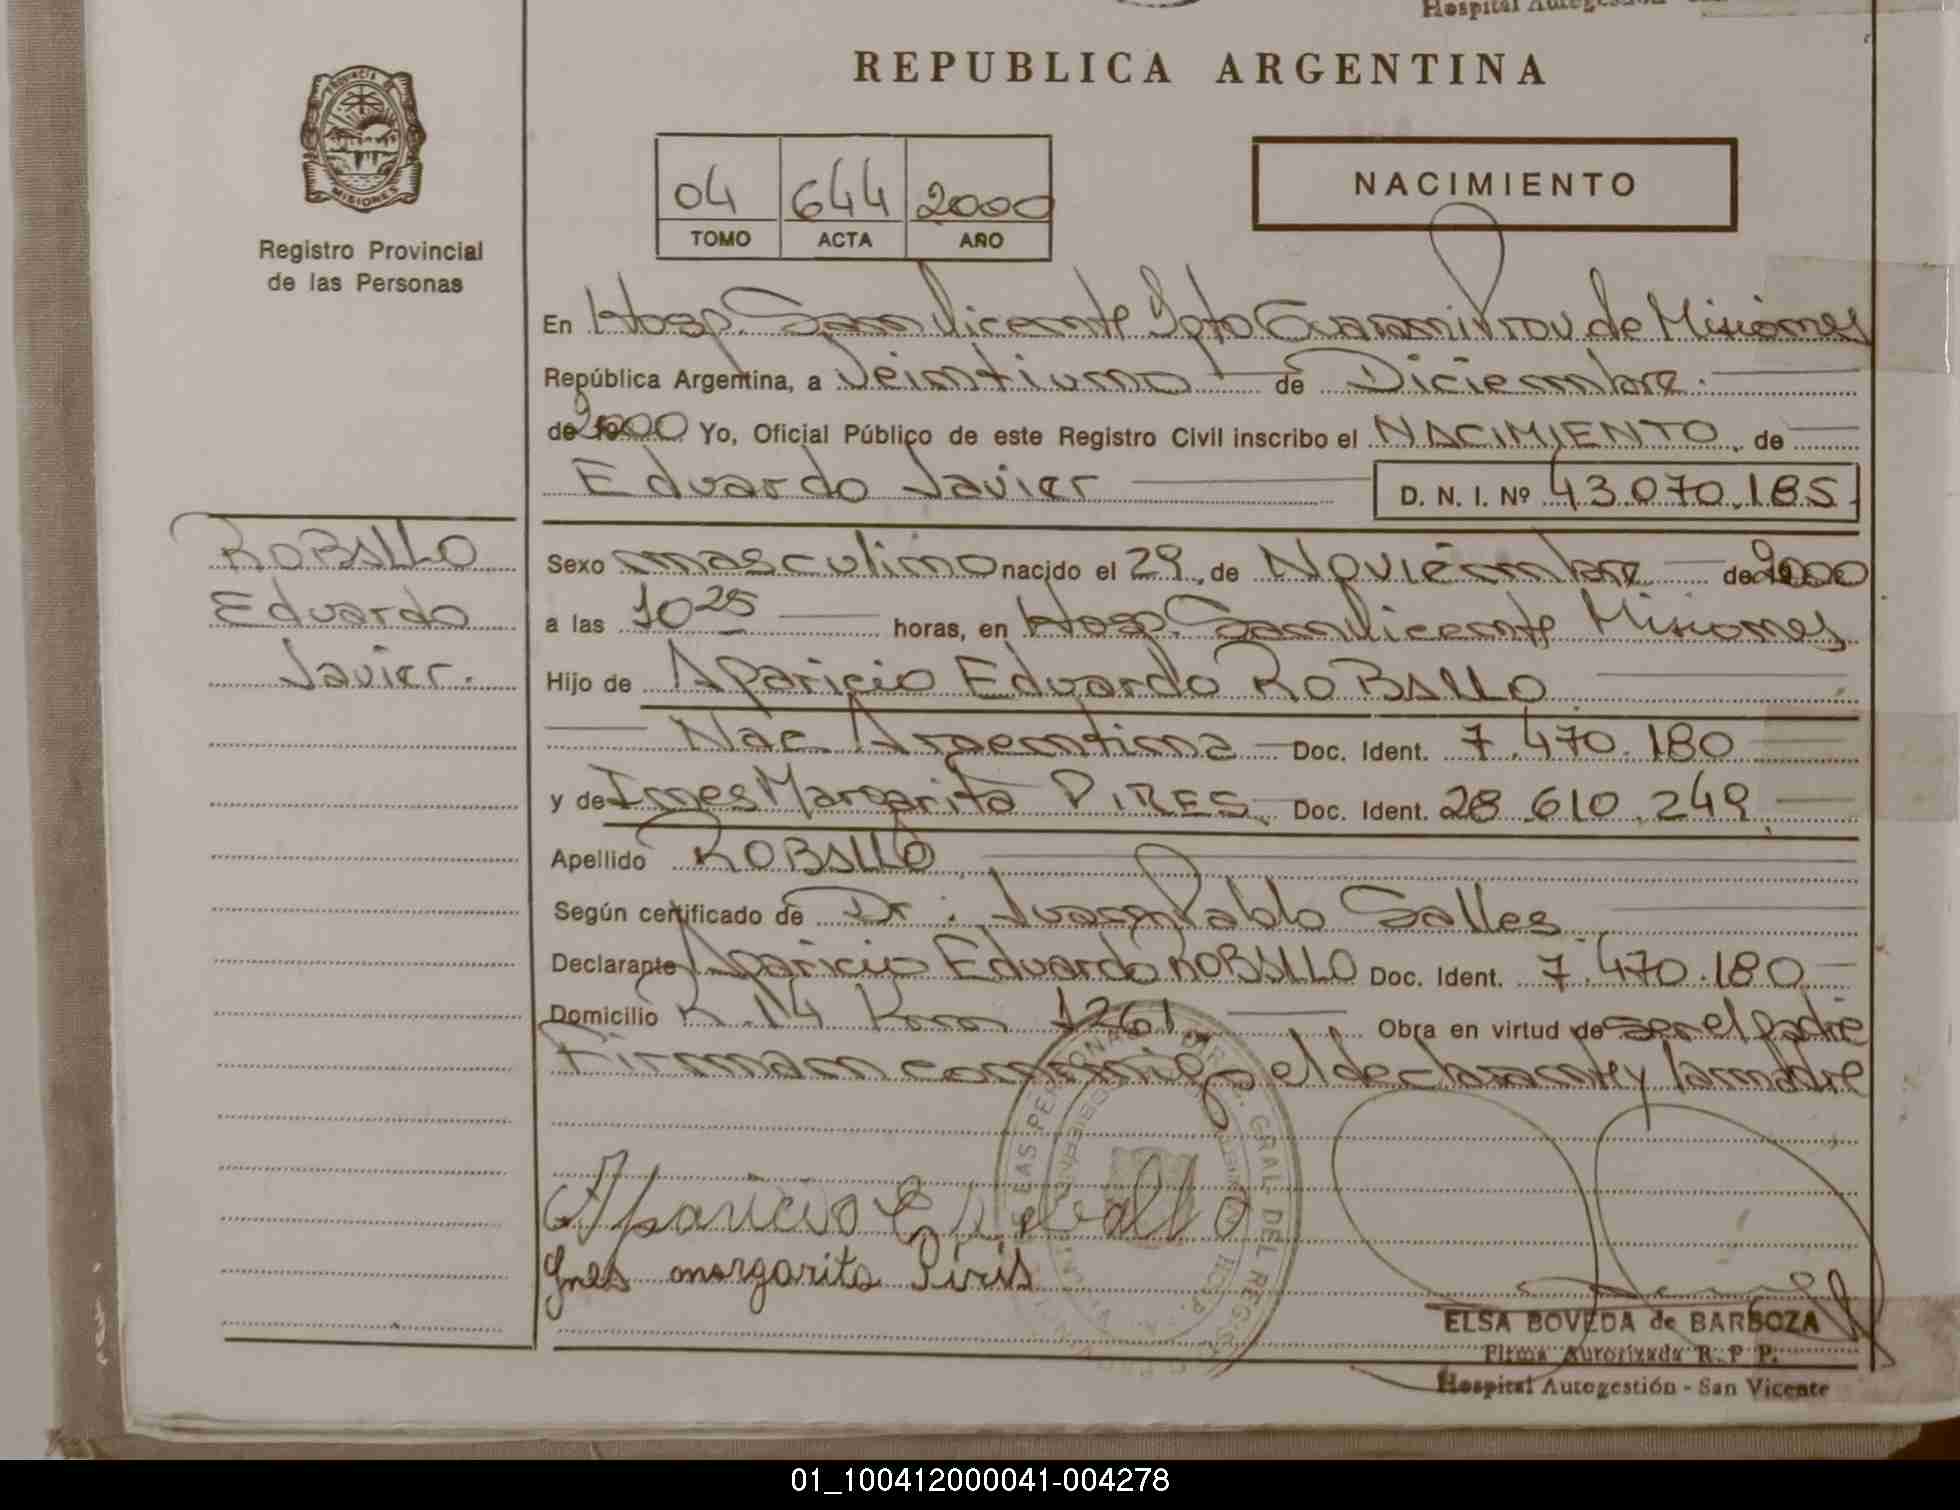 Hospital Autogestión
REPUBLICA ARGENTINA
PROVINCIA DE MISIONES
Registro Provincial
de las Personas
04 644 2000
TOMO ACTA AÑO
NACIMIENTO
En Hosp. San Vicente Dpto Guarani Prov. de Misiones
República Argentina, a Veintiuno de Diciembre.
de 2000 Yo, Oficial Público de este Registro Civil inscribo el NACIMIENTO, de
Eduardo Javier D. N. I. Nº 43.070.185
ROBALLO
Eduardo
Javier.
Sexo masculino nacido el 29, de Noviembre de 2000
a las 10 25 horas, en Hosp. San Vicente Misiones
Hijo de Aparicio Eduardo ROBALLO
Nac. Argentina Doc. Ident. 7.470.180
y de Ines Margarita PIRES Doc. Ident. 28.610.249
Apellido ROBALLO
Según certificado de Dr. Juan Pablo Salles
Declarante Aparicio Eduardo ROBALLO Doc. Ident. 7.470.180
Domicilio R. 14 Km 1261 Obra en virtud de ser el padre
Firman conmigo el declarante y la madre
Aparicio E Roballo
Ynes margarita Piris
DIR. GRAL. DEL REG. LAS PERSONAS
HOSP.
ELSA BOVEDA de BARBOZA
Firma Autorizada R. P P.
Hospital Autogestión - San Vicente
01_100412000041-004278